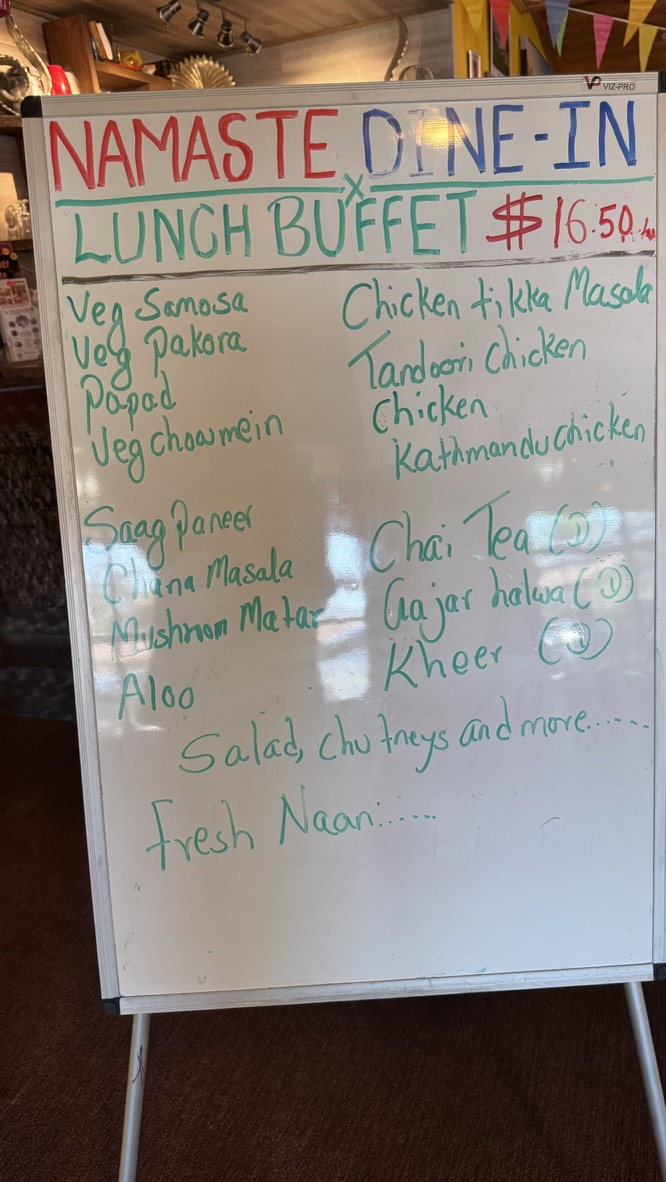 VIZ-PRO
NAMASTE DINE-IN
LUNCH BUFFET $16.50
Veg Samosa
Veg Pakora
Papad
Veg chowmein
Saag Paneer
Chana Masala
Mushroom Matar
Aloo
Chicken tikka Masala
Tandoori Chicken
Chicken
Kathmandu chicken
Chai Tea (D)
Gajar halwa (D)
Kheer
Salad, chutneys and more......
Fresh Naan:.....